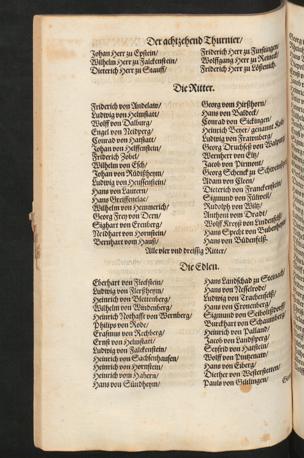 Der achtzehend Thurnier/
Johan Herr zu Epstein/
Wilhelm Herr zu Falckenstein/
Dieterich Herr zu Stauff/
Friderich Herr zu
Wolffgang Herr zu Reineck/
Friderich Herr zu
Die Ritter.
Friderich von Andelaw/
Ludwig von Helmstatt/
Wolff von Dalburg/
Engel von Neidperg/
Conrad von Hatstatt/
Johan von Helffenstein/
Friderich Zobel/
Wilhelm von Esch/
Johan von Rüdißheym/
Ludwig von Heussenstein/
Hans von Lautern/
Hans Greiffenclae/
Wilhelm von Hemmerich/
Georg Frey von Dern/
Sighart von Cronberg/
Neidhart von Hornstein/
Bernhart von Hauß/
Georg vom Hirßhorn/
Hans von Waldeck/
Conrad von Sickingen/
Heinrich Beyer/ genannt
Ludwig von Frawnberg/
Georg Druchseß von
Wernher von Elz/
Jacob von Pirmont/
Georg Schenck zu
Adam von Cleen/
Dieterich von Franckenstein/
Sigmund von Fülwel/
Rudolph von Wilz/
Anthoni von Dradt/
Wolff Kreiß von Lindenfelß/
Hans Specht von
Hans von Büdenfelß.
Alle vier und dreissig Ritter/
Die Edlen.
Eberhart von Fleckstein/
Ludwig von Flerßheym/
Heinrich von Blettenberg/
Wilhelm von Windenberg/
Heinrich Nothafft von Wernberg/
Philips von Rode/
Erasmus von Rechberg/
Ernst von Helmstatt/
Ludwig von Falckenstein/
Heinrich von Sachsenhausen/
Heinrich von Hornstein/
Heinrich von Hahern/
Hans von Sündheym/
Hans Landschad zu
Hans von Nesselrode/
Ludwig von Trachenfelß/
Hans von Gerttenberg/
Sigmund von Seiboltsdorff/
Burckhart von
Heinrich von Palland/
Jacob von Landsperg/
Seyfrid von Hatstein/
Wolff von
Hans von Eiberg/
Diether von Westerstetten/
Pauls von Gültlingen/